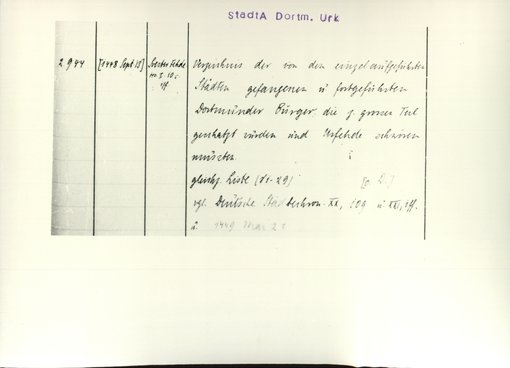 StadtA Dortm. Urk
2944 [1448 Sept. 15] Soester Fehde Verzeichnis der von den einzel aufgeführten
Städten gefangenen u fortgeführten
Dortmunder Bürger, die z. grossen Teil
geschatzt wurden und Urfehde schwören
mussten
gleichz. Liste
vgl. Deutsche Städtechron. XX, 109 u XXI,
u. 1449 Mai 21